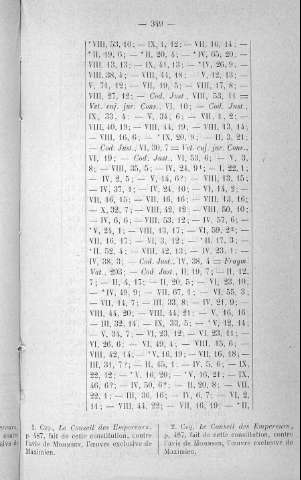 — 349 —
*VIII, 53, 10; — IX, 1, 12; — VII, 16, 14; —
*II, 49, 6; — *II, 20, 4; — *IV, 65, 20; —
VIII, 13, 13; — IX, 41, 13; — *IV, 26, 9; —
VIII, 38, 4; — VIII, 44, 18; — V, 12, 13; —
V, 71, 12; — VII, 49, 5; — VIII, 17, 8; —
VIII, 27, 12; — Cod. Just. VIII, 53, 11 =
Vet. cuj. jur. Cons., VI, 10; — Cod. Just.,
IX, 33, 4; — V, 34, 6; — VII, 1, 2; —
VIII, 40, 19; — VIII, 44, 19, — VIII, 13, 14;
— VIII, 16, 6; — *IX, 20, 9; — II, 3, 21;
— Cod. Just., VI, 30, 7 = Vet. cuj. jur. Cons.,
VI, 19; — Cod. Just., VI, 53, 6; — V, 3,
8; — VIII, 35, 5; — IV, 24, 9*; — I, 22, 1;
— IV, 2, 5; — V, 14, 6*; — VIII, 13, 15;
— IV, 37, 1; — IV, 24, 10; — VI, 14, 2;
VII, 16, 15; — VII, 16, 16; — VIII, 13, 16;
— X, 32, 7; — VIII, 42, 12; — VIII, 50, 10;
— IV, 6, 6; — VIII, 53, 12; — IV, 57, 6;
*V, 24, 1; — VIII, 13, 17; — VI, 59, 2*; —
VII, 16, 17; — VI, 3, 12; — *II, 17, 3; —
*II, 52, 4; — VIII, 42, 13; — IV, 23, 1; —
IV, 38, 3; — Cod. Just., IV, 38, 4 = Fragm.
Vat., 293; — Cod. Just., II, 19, 7; — II, 12,
7; — II, 4, 17; — II, 20, 5; — VI, 23, 10;
— *IV, 49, 9; — VII, 67, 1; — VI, 55, 3;
— VII, 14, 7; — III, 33, 8; — IV, 21, 9;
VIII, 44, 20; — VIII, 44, 21; — V, 16, 16;
— III, 32, 14; — IX, 33, 5; — *V, 42, 14;
— V, 34, 7; — VI, 23, 12; — VI, 23, 11;
VI, 26, 6; — VI, 49, 4; — VIII, 45, 6;
VIII, 42, 14; — *V, 16, 19; — VII, 16, 18; —
III, 31, 7*; — II, 45, 1; — IV, 5, 6; — IX,
22, 12; — *V, 16, 20; — *V, 16, 21; — IX,
46, 6*; — IV, 50, 6*; — II, 20, 8; — VII,
22, 1; — III, 36, 16; — IV, 6, 7; — VI, 2,
11; — VIII, 44, 22; — VII, 16, 19; — *II,
1. Cuq, Le Conseil des Empereurs,
p. 487, fait de cette constitution, contre
l'avis de Mommsen, l'œuvre exclusive de
Maximien.
2. Cuq, Le Conseil des Empereurs,
p. 487, fait de cette constitution, contre
l'avis de Mommsen, l'œuvre exclusive de
Maximien.